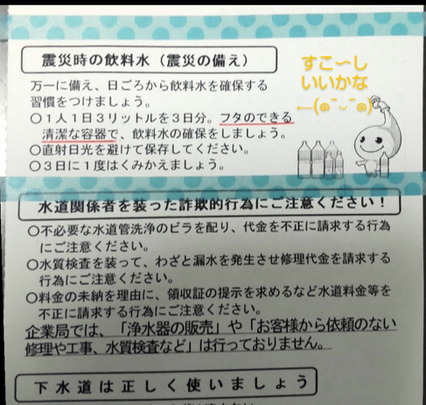 震災時の飲料水（震災の備え）
すこ〜し
いいかな
万一に備え、日ごろから飲料水を確保する
習慣をつけましょう。
○1人1日3リットルを3日分。フタのできる
清潔な容器で、飲料水の確保をしましょう。
○直射日光を避けて保存してください。
○3日に1度はくみかえましょう。
水道関係者を装った詐欺的行為にご注意ください！
○不必要な水道管洗浄のビラを配り、代金を不正に請求する行為
にご注意ください。
○水質検査を装って、わざと漏水を発生させ修理代金を請求する
行為にご注意ください。
○料金の未納を理由に、領収証の提示を求めるなど水道料金等を
不正に請求する行為にご注意ください。
企業局では、「浄水器の販売」や「お客様から依頼のない
修理や工事、水質検査など」は行っておりません。
下水道は正しく使いましょう